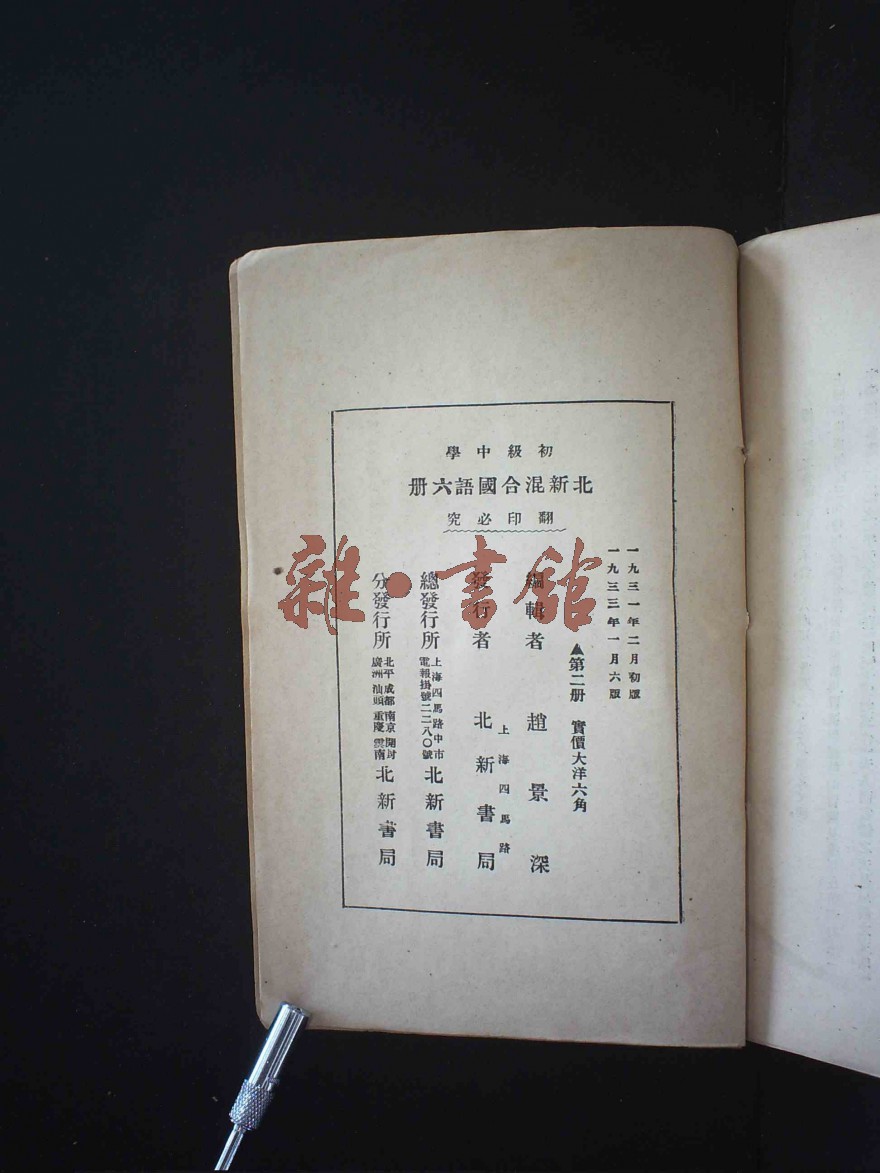 初級中學
北新混合國語六册
翻印必究
一九三一年二月初版
一九三三年一月六版
▲第二册 實價大洋六角
編輯者 趙景深
發行者 上海四馬路 北新書局
總發行所 上海四馬路中市 電報掛號二二八〇號 北新書局
分發行所 北平 成都 南京 開封 廣州 汕頭 重慶 雲南 北新書局
雜·書館